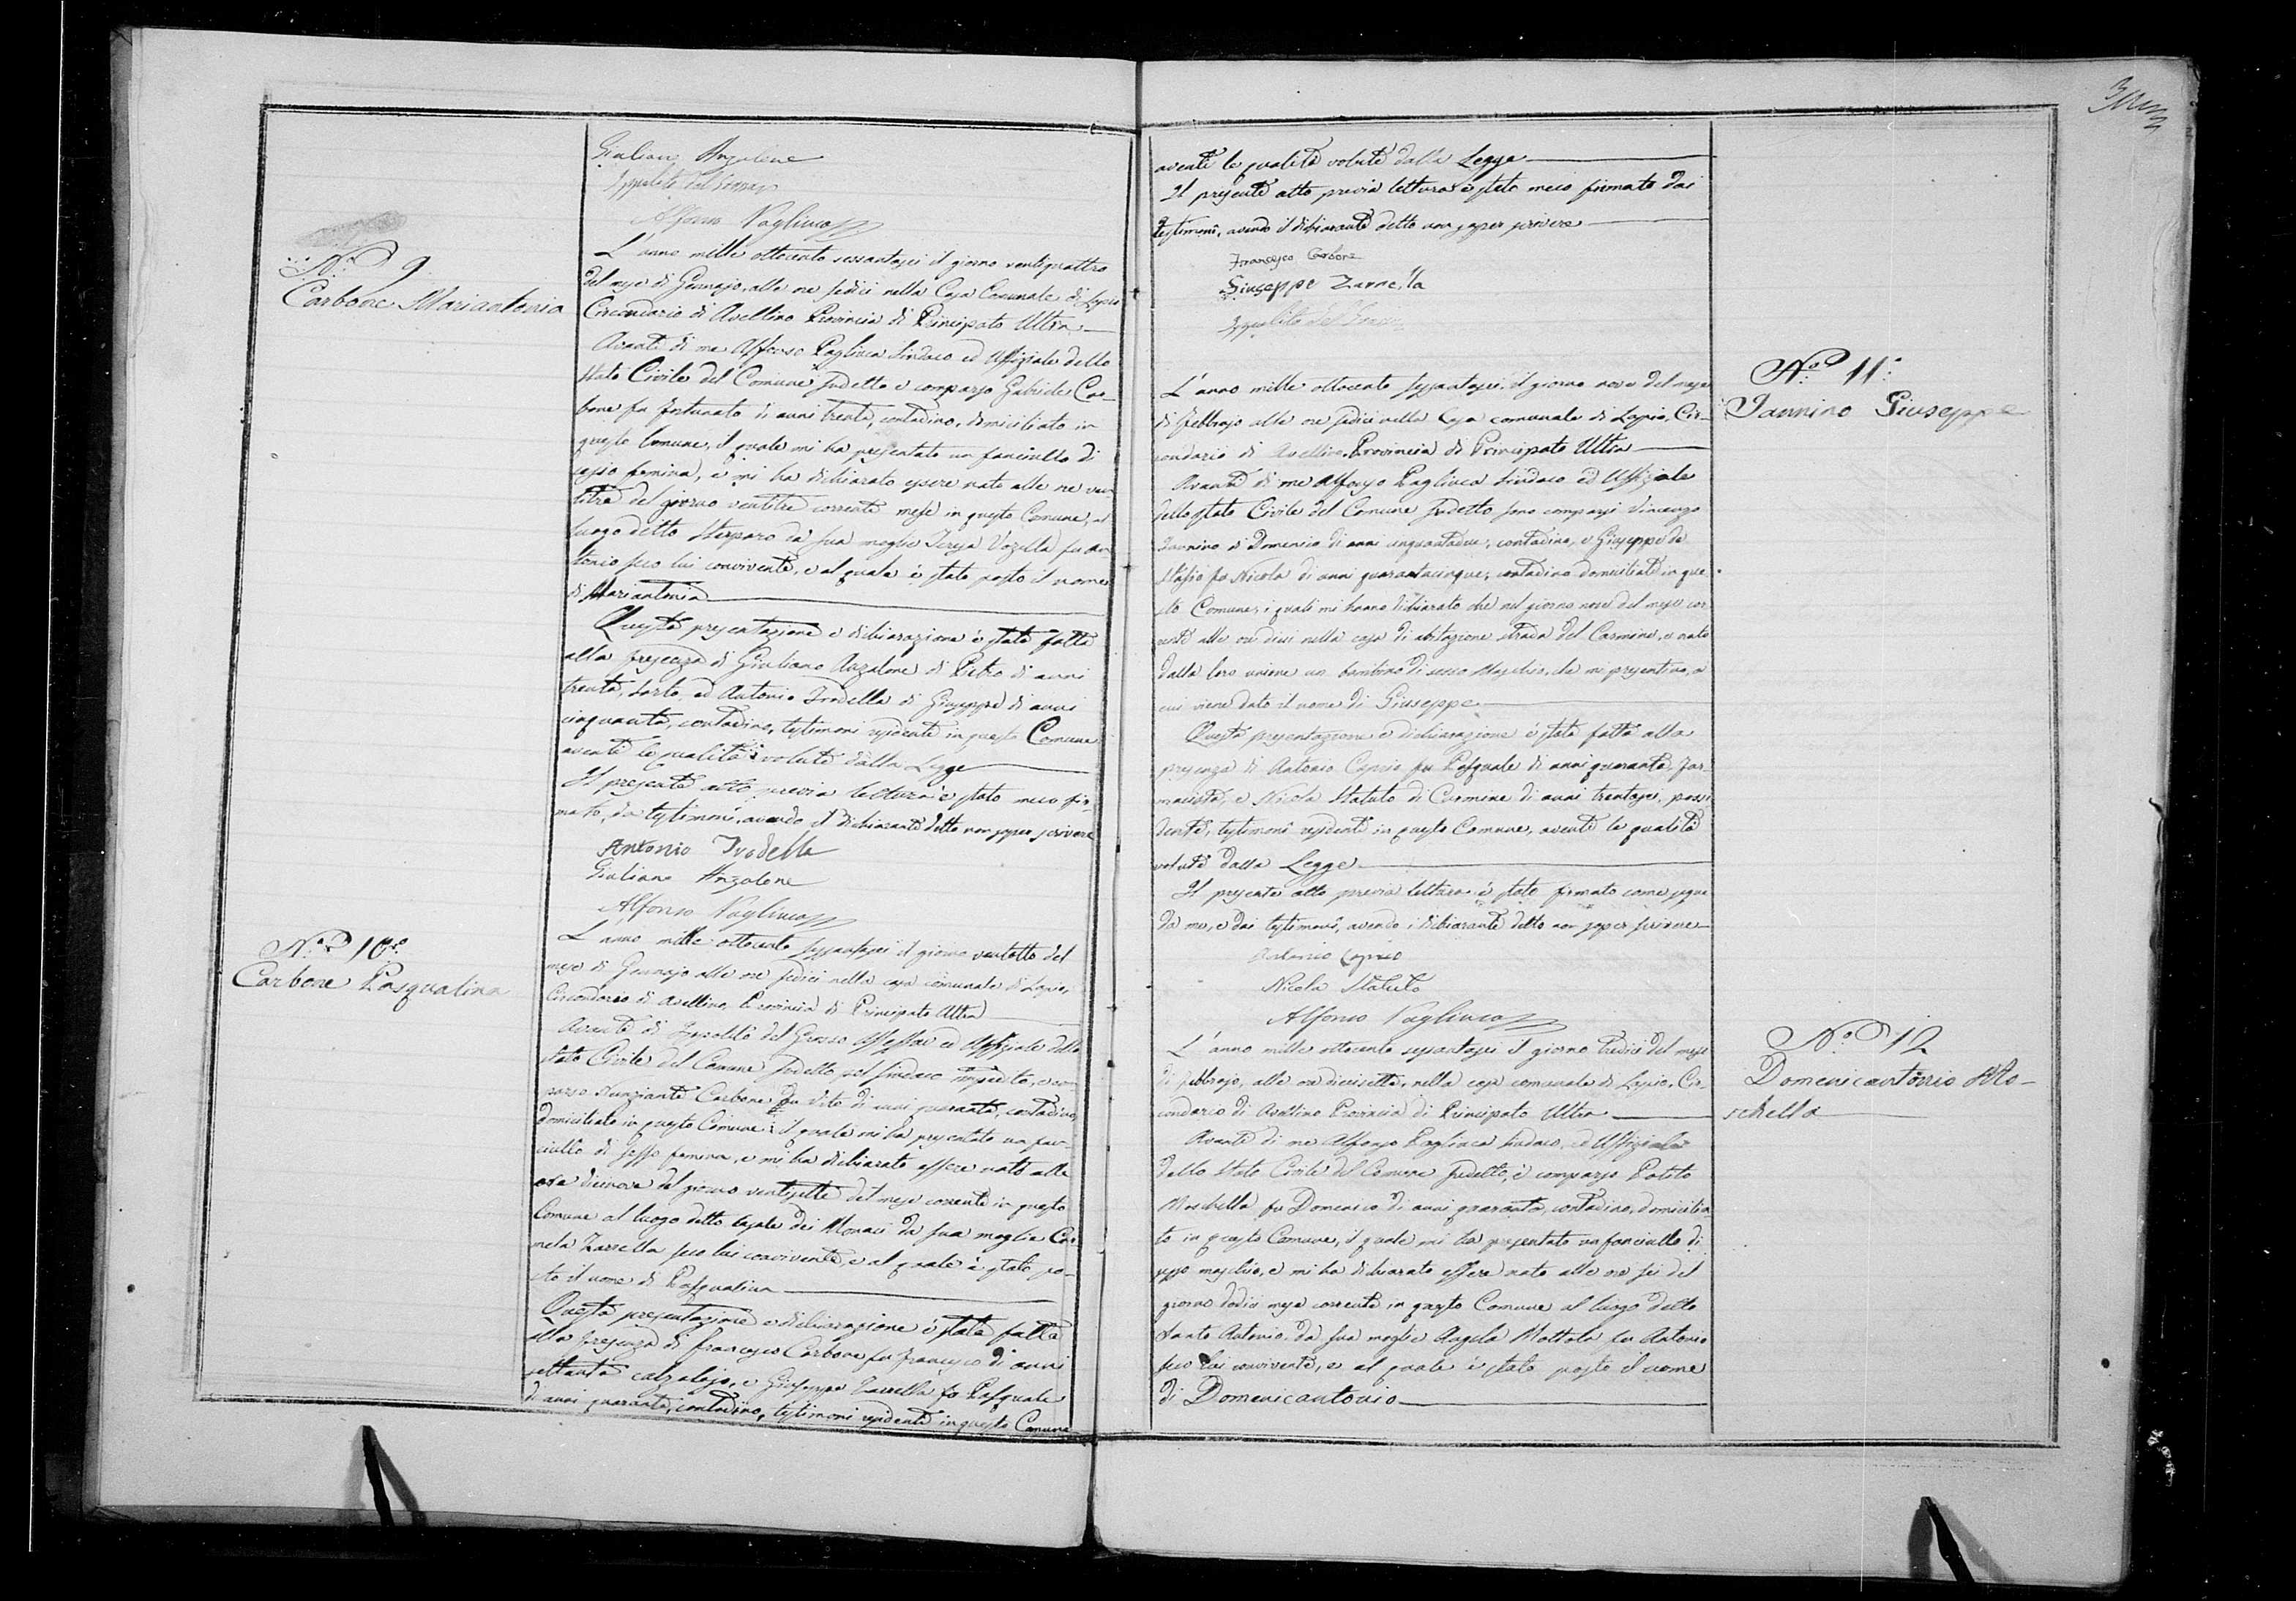 Giuliano Anzalone
Ippolito del Grosso
Alfonso Pagliuca
N.° 9
Carbone Mariantonia
L'anno mille ottocento sessantasei il giorno ventiquattro
del mese di Gennajo, alle ore sedici nella Casa Comunale di Lapio
Circondario di Avellino Provincia di Principato Ultra
Avanti di me Alfonso Pagliuca Sindaco ed Uffiziale dello
Stato Civile del Comune sudetto è comparso Gabriele Car-
bone fu Fortunato di anni trenta, contadino, domiciliato in
questo Comune, il quale mi ha presentato un fanciullo di
sesso femina, e mi ha dichiarato essere nato alle ore ven-
titre del giorno ventitre corrente mese in questo Comune, al
luogo detto Sterparo da sua moglie Teresa Vozella fu An-
tonio seco lui convivente, e al quale è stato posto il nome
di Mariantonia
Questa presentazione e dichiarazione è stata fatta
alla presenza di Giuliano Anzalone di Pietro di anni
trenta, sarto, ed Antonio Trodella di Giuseppe di anni
cinquanta, contadino, testimoni residenti in questo Comune
aventi le qualità volute dalla Legge
Il presente atto previa lettura è stato meco fir-
mato, da testimoni, avendo il dichiarante detto non saper scrivere
Antonio Trodella
Giuliano Anzalone
Alfonso Pagliuca
N.° 10.°
Carbone Pasqualina
L'anno mille ottocento sessantasei il giorno ventotto del
mese di Gennajo alle ore sedici nella casa comunale di Lapio,
Circondario di Avellino, Provincia di Principato Ultra
Avanti di Ippolito del Grosso Assessore ed Uffiziale dello
Stato Civile del Comune sudetto pel Sindaco impedito, è com-
parso Nunziante Carbone fu Vito di anni quaranta, contadino,
domiciliato in questo Comune il quale mi ha presentato un fan-
ciullo di sesso femina, e mi ha dichiarato essere nato alle
ore diecinove del giorno ventisette del mese corrente in questo
Comune al luogo detto Casale dei Monaci da sua moglie Car-
mela Zarrella seco lui convivente, e al quale è stato po-
sto il nome di Pasqualina
Questa presentazione e dichiarazione è stata fatta
alla presenza di Francesco Carbone fu Francesco di anni
settanta calzolajo, e Giuseppe Zarrella fu Pasquale
di anni quaranta, contadino, testimoni residenti in questo Comune
aventi le qualità volute dalla Legge
Il presente atto previa lettura è stato meco firmato dai
testimoni, avendo il dichiarante detto non saper scrivere
Francesco Carbone
Giuseppe Zarrella
Ippolito del Grosso
N.° 11.°
Iannino Giuseppe
L'anno mille ottocento sessantasei, il giorno nove del mese
di Febbrajo alle ore sedici nella Casa comunale di Lapio, Cir-
condario di Avellino, Provincia di Principato Ultra
Avanti di me Alfonso Pagliuca Sindaco ed Uffiziale
dello Stato Civile del Comune sudetto sono comparsi Vincenzo
Iannino di Domenico di anni cinquantadue, contadino, e Giuseppe de
Stasio fu Nicola di anni quarantacinque, contadino domiciliati in que-
sto Comune, i quali mi hanno dichiarato che nel giorno nove del mese cor-
rente alle ore dieci nella casa di abitazione strada del Carmine, è nato
dalla loro unione un bambino di sesso Maschio, che mi presentano, a
cui viene dato il nome di Giuseppe
Questa presentazione e dichiarazione è stata fatta alla
presenza di Antonio Caprio fu Pasquale di anni quaranta, far-
macista, e Nicola Statuto di Carmine di anni trentasei, possi-
dente, testimoni residenti in questo Comune, aventi le qualità
volute dalla Legge
Il presente atto previa lettura è stato firmato come segue
da me, e dai testimoni, avendo i dichiaranti detto non saper scrivere
Antonio Caprio
Nicola Statuto
Alfonso Pagliuca
N.° 12
Domenicantonio Mo-
schella
L'anno mille ottocento sessantasei il giorno tredici del mese
di Febbrajo, alle ore diecisette, nella casa comunale di Lapio, Cir-
condario di Avellino Provincia di Principato Ultra
Avanti di me Alfonso Pagliuca Sindaco, ed Uffiziale
dello Stato Civile del Comune sudetto, è comparso Potito
Moschella fu Domenico di anni quaranta, contadino, domicilia-
to in questo Comune, il quale mi ha presentato un fanciullo di
sesso maschio, e mi ha dichiarato essere nato alle ore sei del
giorno dodici mese corrente in questo Comune al luogo detto
Santo Antonio, da sua moglie Angela Mottola fu Antonio
seco lui convivente, e al quale è stato posto il nome
di Domenicantonio